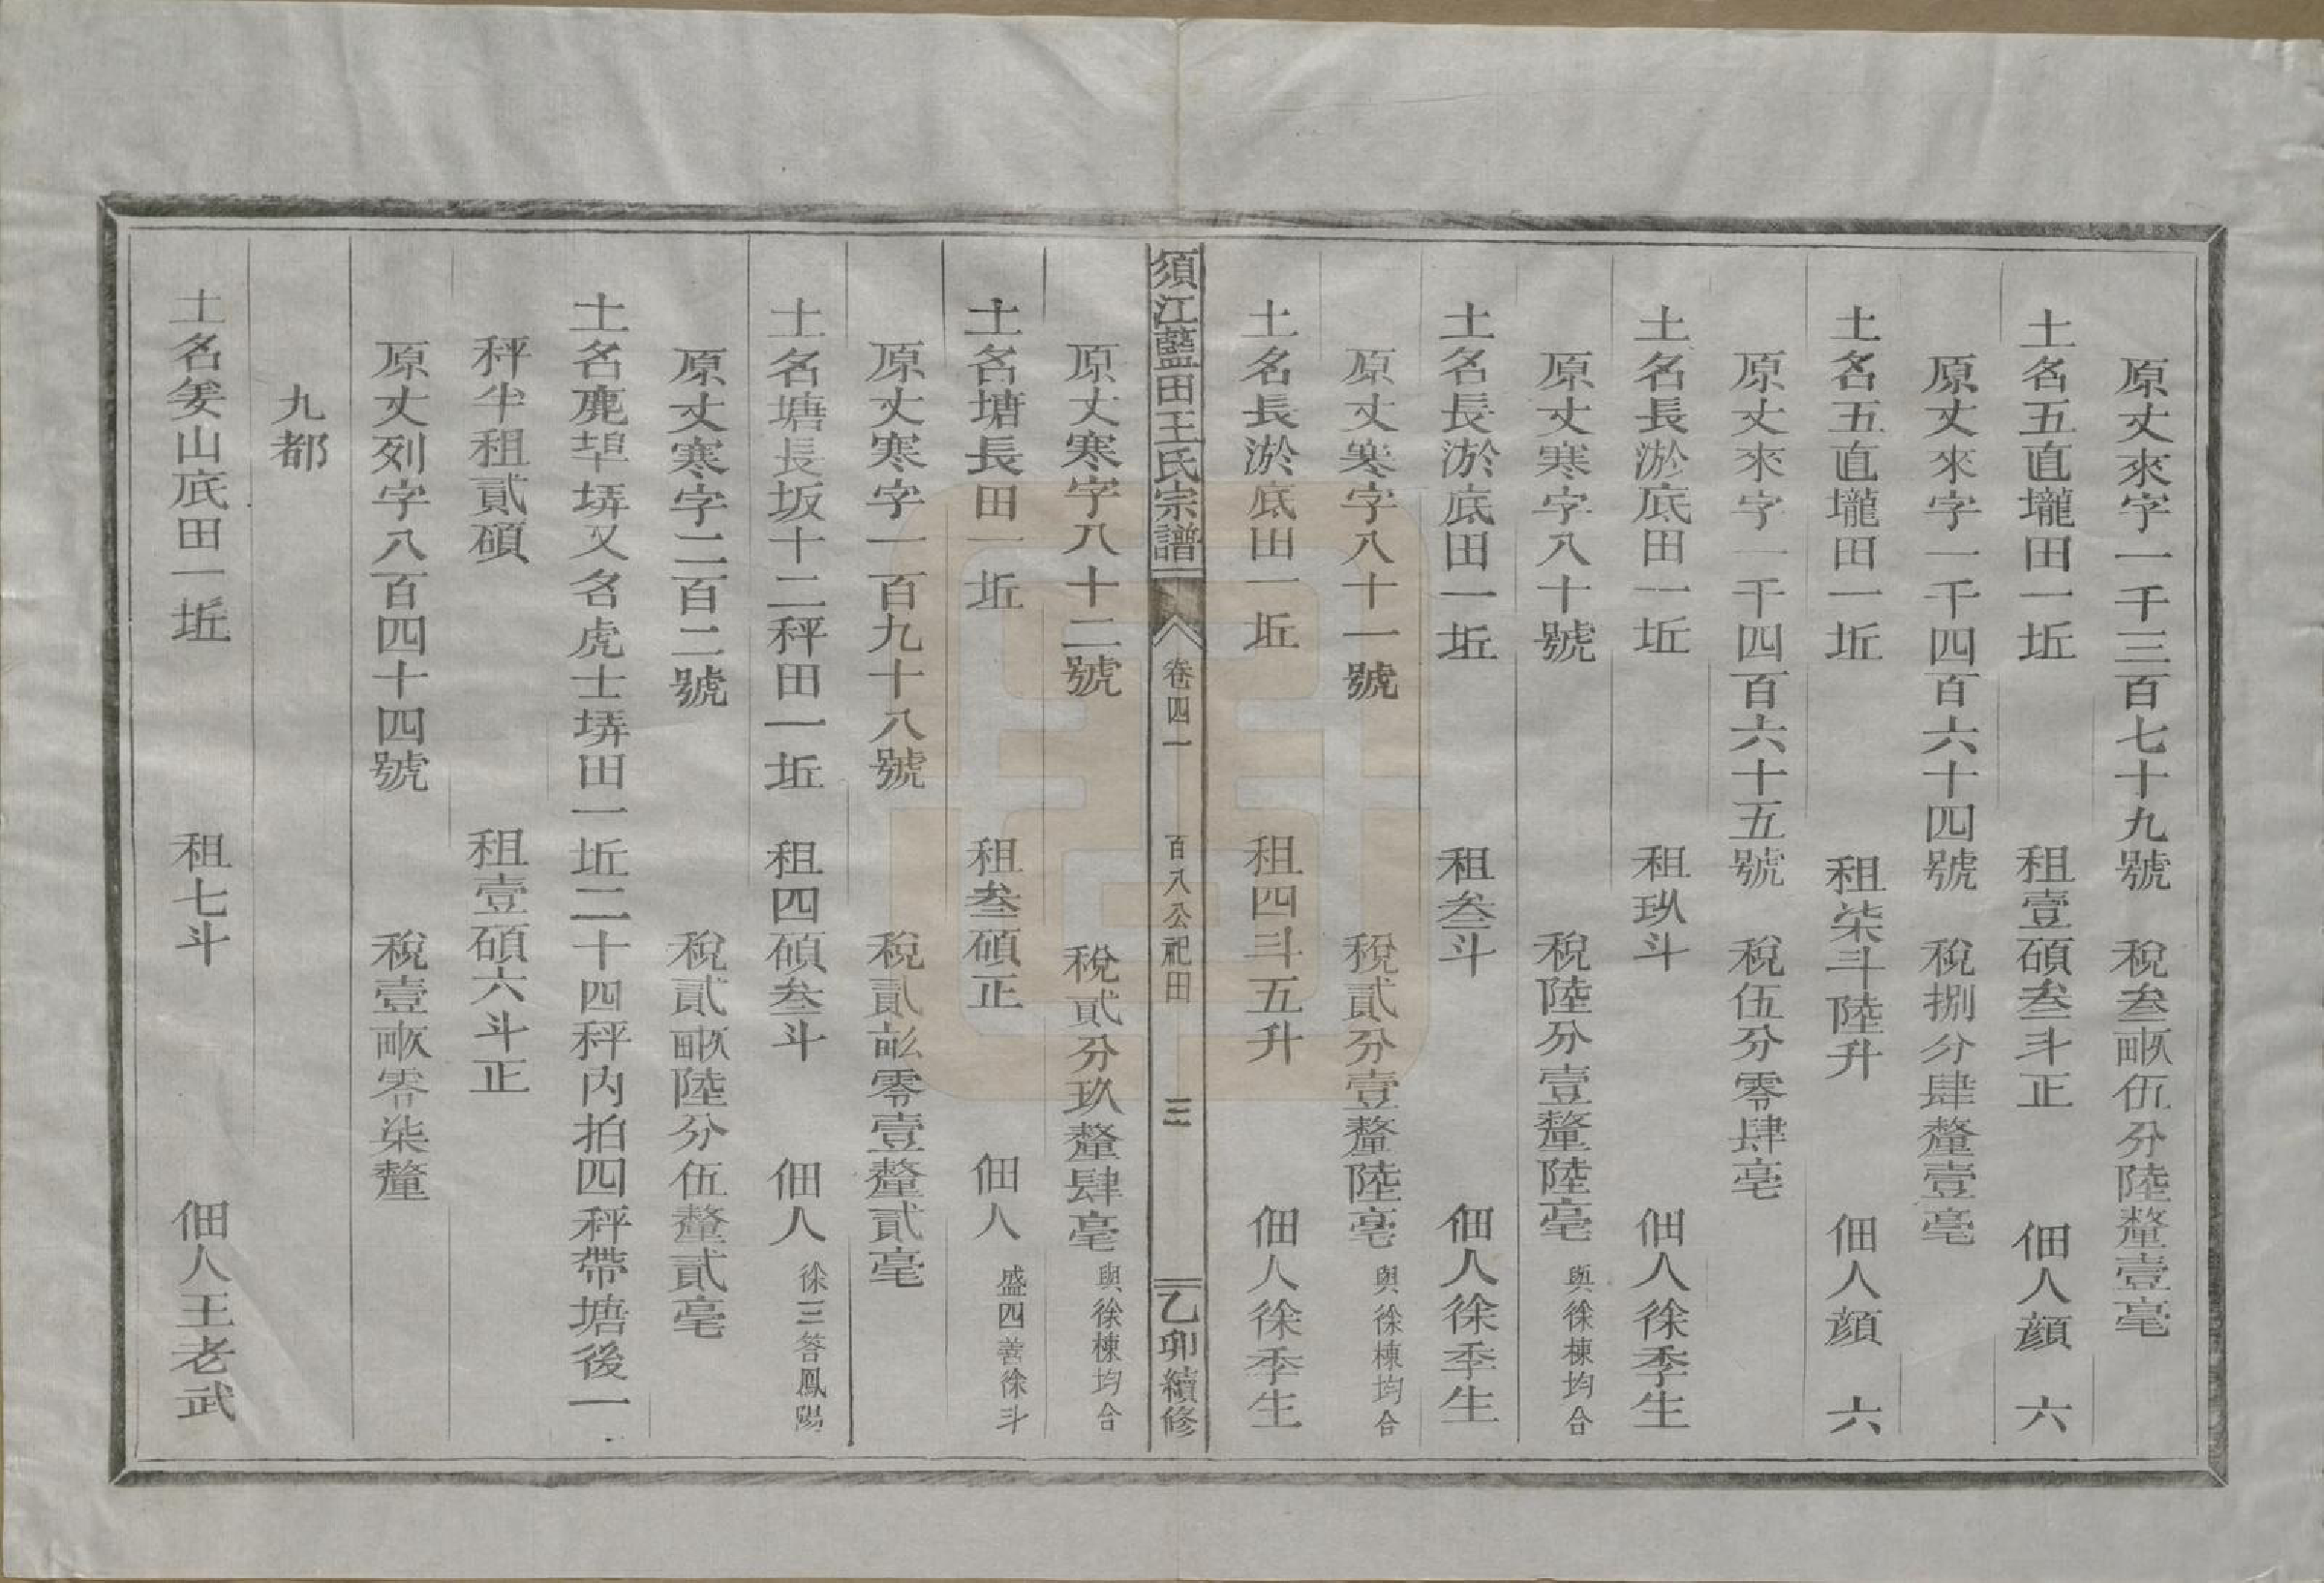 原丈來字一千三百七十九號　稅叁畝伍分陸釐壹毫
土名五直壠田一坵　租壹碩叁斗正　佃人顔　六
原丈來字一千四百六十四號　稅捌分肆釐壹毫
土名五直壠田一坵　租柒斗陸升　佃人顔　六
原丈來字一千四百六十五號　稅伍分零肆毫
土名長淤底田一坵　租玖斗　佃人徐季生
原丈寒字八十號　稅陸分壹釐陸毫　與徐棟均合
土名長淤底田一坵　租叁斗　佃人徐季生
原丈寒字八十一號　稅貳分壹釐陸毫　與徐棟均合
土名長淤底田一坵　租四斗五升　佃人徐季生
須江藍田王氏宗譜　卷四一　百八公祀田　三　乙卯續修
原丈寒字八十二號　稅貳分玖釐肆毫　與徐棟均合
土名塘長田一坵　租叁碩正　佃人　盛四善徐斗
原丈寒字一百九十八號　稅貳畝零壹釐貳毫
土名塘長坂十二秤田一坵　租四碩叁斗　佃人　徐三答鳳陽
原丈寒字二百二號　稅貳畝陸分伍釐貳毫
土名鹿埠塝又名虎士塝田一坵二十四秤內拍四秤帶塘後一
秤半租貳碩　租壹碩六斗正
原丈列字八百四十四號　稅壹畝零柒釐
九都
土名姜山底田一坵　租七斗　佃人王老武